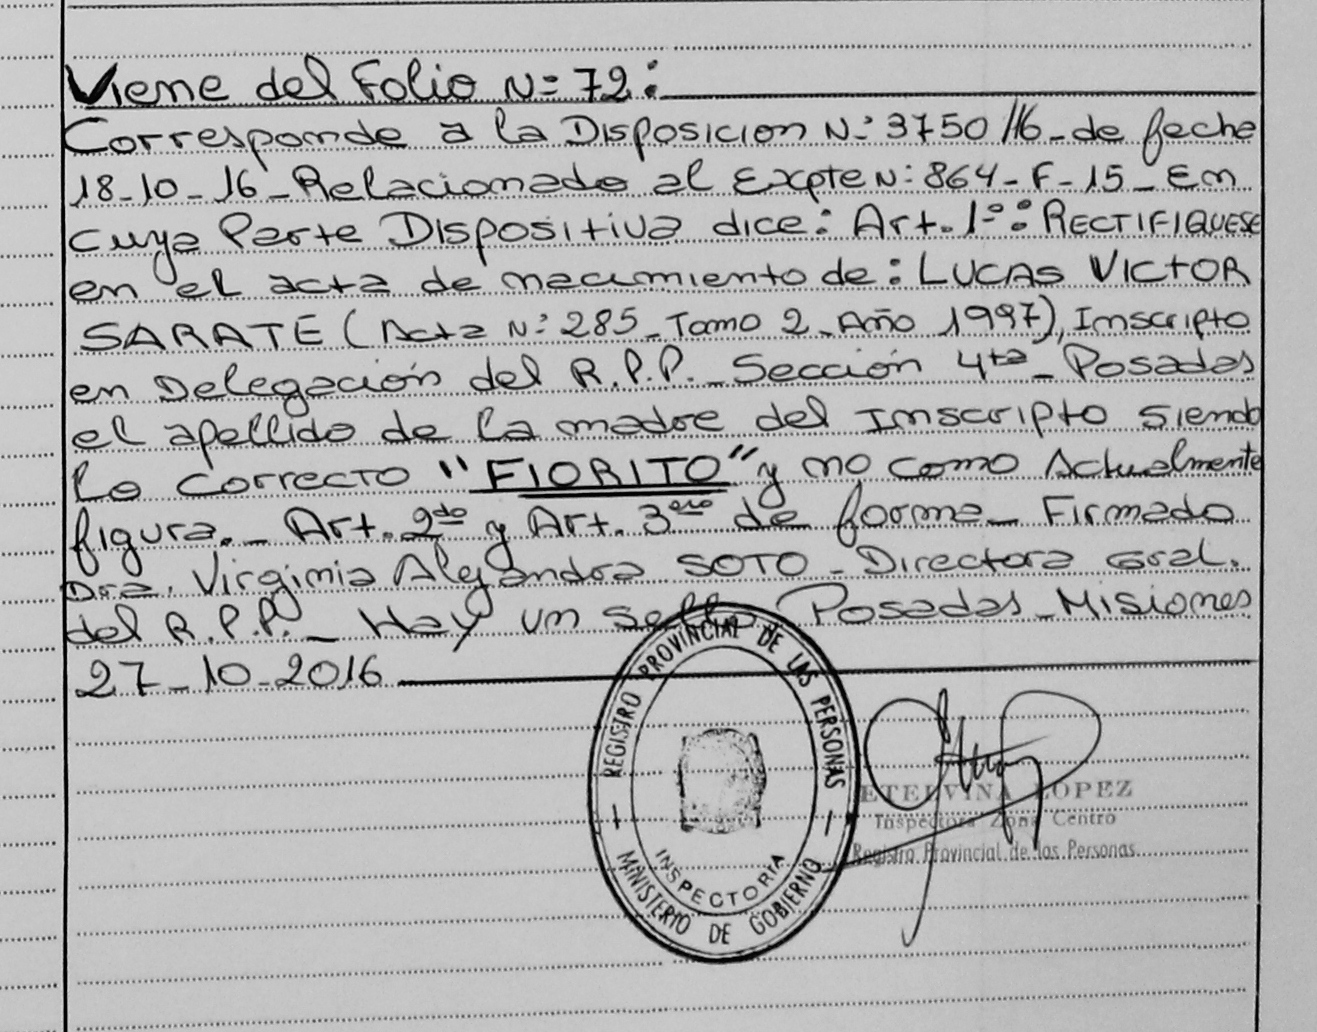 Viene del Folio N= 72:
Corresponde a la Disposicion N:º 3750/16_de fecha
18-10-16_Relacionado al Expte N: 864-F-15_En
cuya Parte Dispositiva dice: Art. 1=º: RECTIFIQUESE
en el acta de nacimiento de: LUCAS VICTOR
SARATE (Acta N:º 285_Tomo 2_Año 1997), Inscripto
en Delegación del R.P.P._Sección 4ta_Posadas
el apellido de la madre del Inscripto siendo
lo correcto "FIORITO" y no como Actualmente
figura._ Art. 2do y Art. 3ero de forma_ Firmado
Dra. Virginia Alejandra SOTO_Directora Gral.
del R.P.P._ Hay un sello Posadas_Misiones
27_10_2016
REGISTRO PROVINCIAL DE LAS PERSONAS
INSPECTORIA
MINISTERIO DE GOBIERNO
ETELVINA LOPEZ
Inspectora Zona Centro
Registro Provincial de las Personas